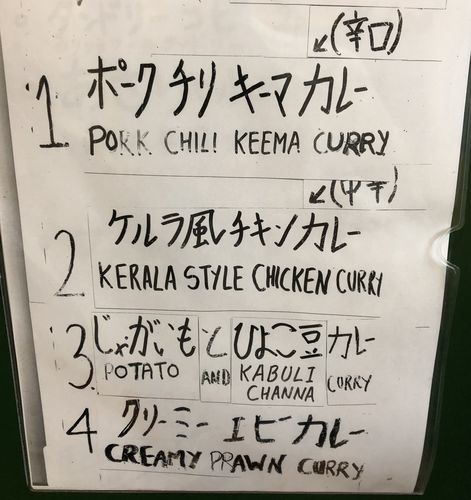 ↙(辛口)
1 ポーク チリ キーマ カレー
PORK CHILI KEEMA CURRY
↙(中辛)
2 ケルラ風チキンカレー
KERALA STYLE CHICKEN CURRY
3 じゃがいも と ひよこ豆 カレー
POTATO AND KABULI CHANNA CURRY
4 クリーミー エビ カレー
CREAMY PRAWN CURRY